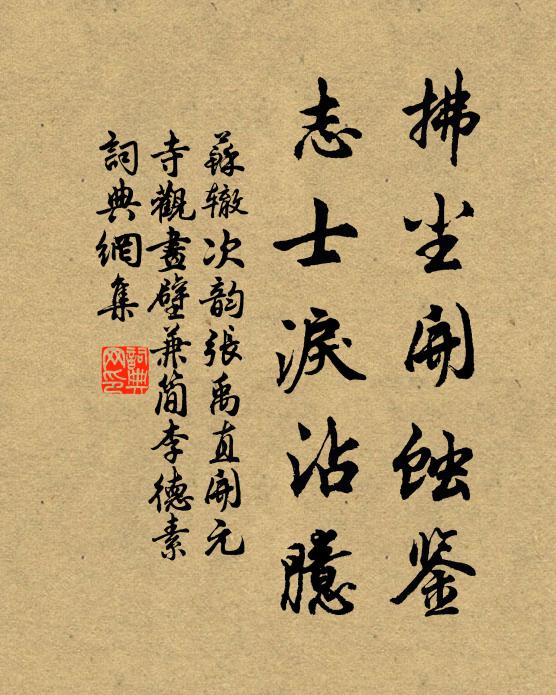 拂尘开蚀鉴
志士淚沾臆
蘇辙次韵張禹直開元
寺觀畫壁兼简李德素
詞典網集
詞典網印